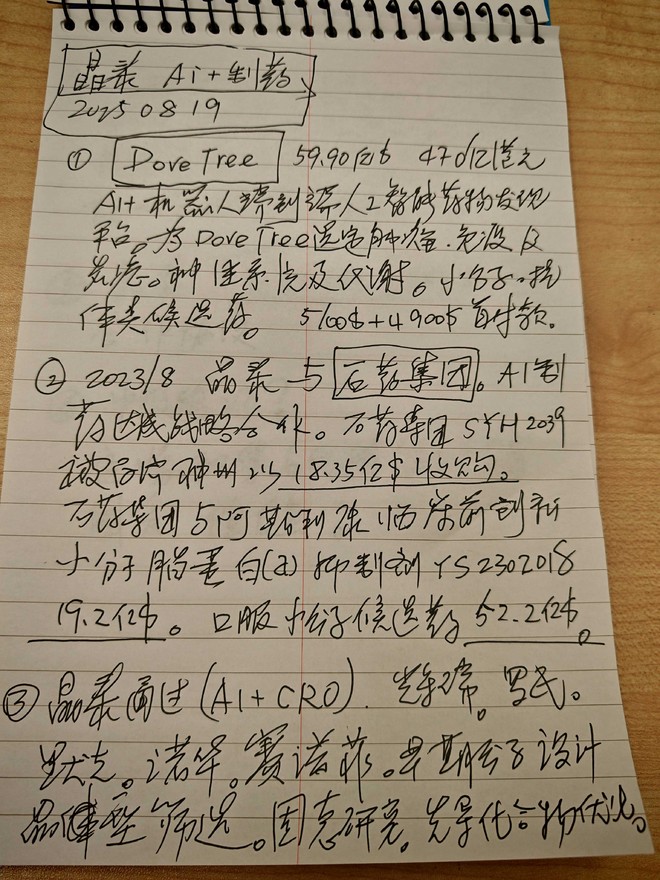 晶泰 Ai+制药
2025 08 19
① Dove Tree 59.90亿$ 470亿港元
AI+机器人端到端人工智能药物发现
平台。为DoveTree选定肿瘤.免疫及
炎症。神经系统及代谢。小分子.抗
体类候选药。 5100$+4900$首付款。
② 2023/8 晶泰与石药集团。AI制
药达成战略合作。石药集团SYH2039
被百济神州以18.35亿$收购。
石药集团与阿斯利康临床前创新
小分子脂蛋白(a)抑制剂YS2302018
19.2亿$。口服小分子候选药52.2亿$。
③ 晶泰通过(AI+CRO). 辉瑞。罗氏。
默克。诺华。赛诺菲。早期分子设计
晶型筛选。固态研究。先导化合物优化。